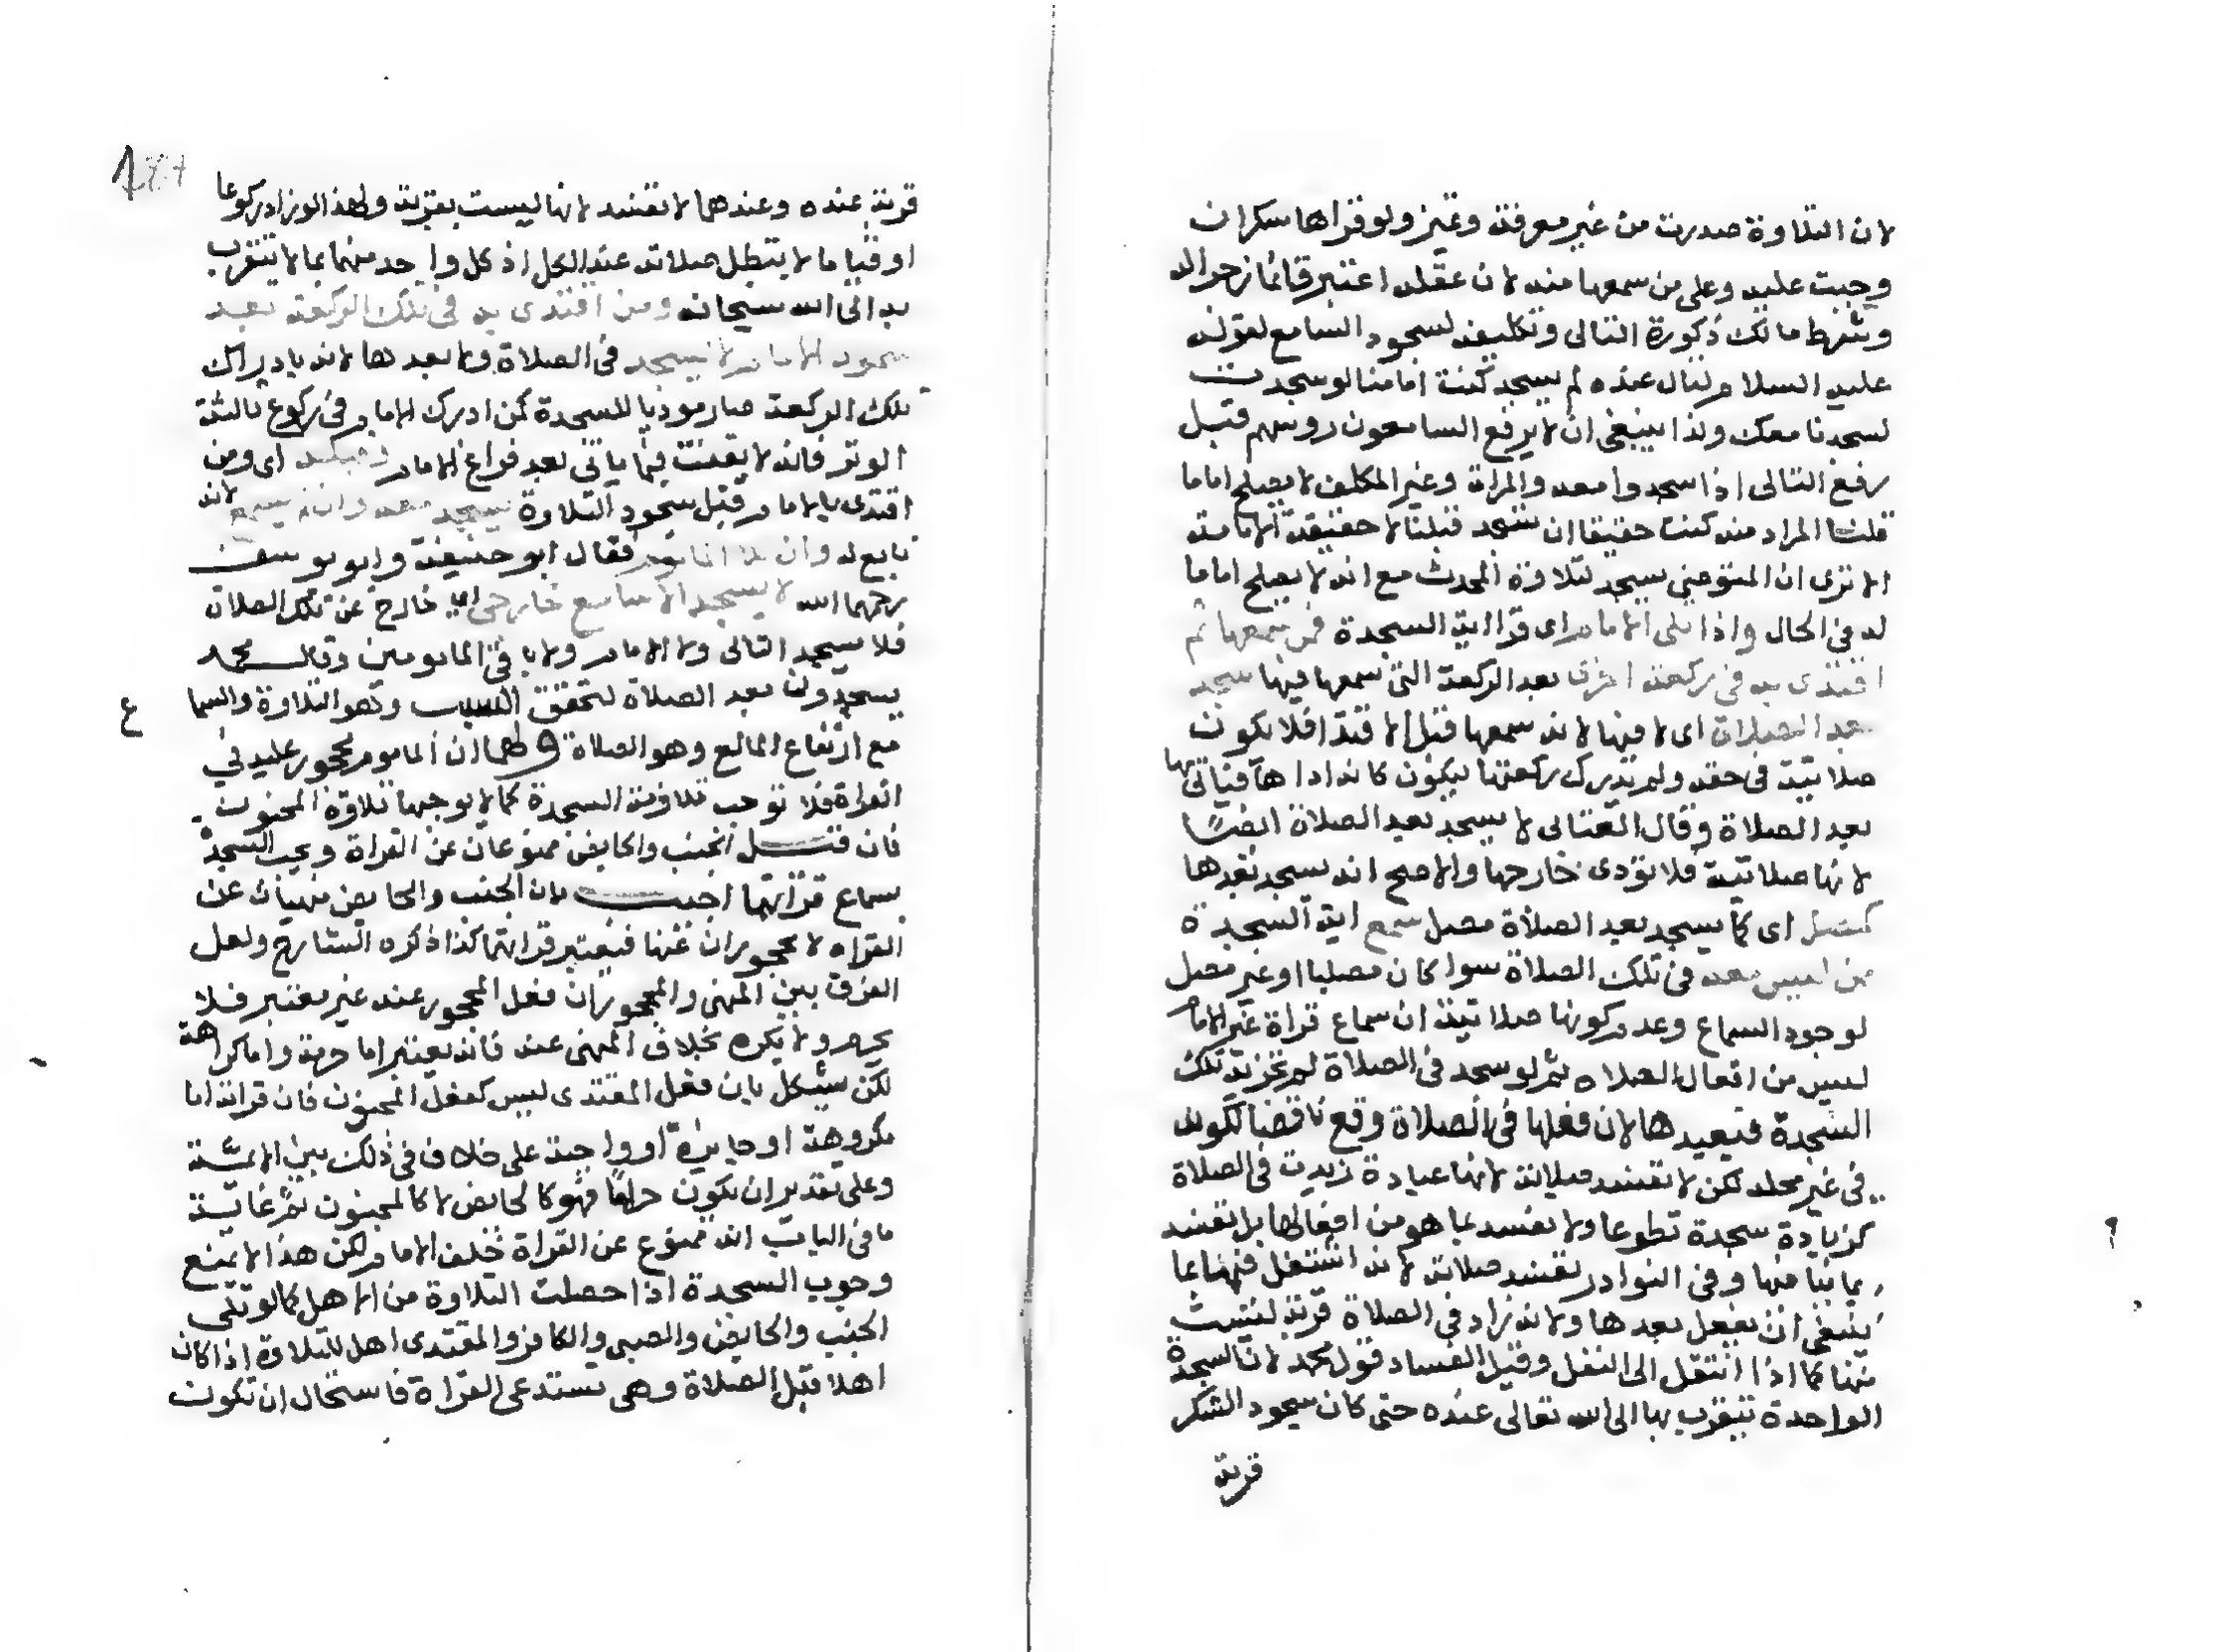 لان التلاوة صدرت من غير معرفة وتميز ولو قراها سكران
وجبت عليه وعلى من سمعها منه لان عقله اعتبر قائما زجرا له
وشرط مالك ذكورة التالى وتكليفه لسجود السامع لقوله
عليه السلام لتال عنده لم يسجد كنت امامنا لو سجدت
لسجدنا معك ولذا ينبغى ان لا يرفع السامعون روسهم قبل
رفع التالى اذا سجدوا معه والمراة وغير المكلف لا يصلح اماما
قلنا المراد منه كنت حقيقا ان تسجد قبلنا لا حقيقة الامامة
الا ترى ان المتوضى يسجد لتلاوة المحدث مع انه لا يصلح اماما
له فى الحال واذا تلى الامام اى قرا اية السجدة فمن سمعها ثم
اقتدى به فى ركعة اخرى بعد الركعة التى سمعها فيها سجد
بعد الصلاة اى لا فيها لانه سمعها قبل الاقتدا فلا تكون
صلاتية فى حقه ولم يدرك ركعتها ليكون كانه اداها فياتى بها
بعد الصلاة وقال العتابى لا يسجد بعد الصلاة ايضا
لانها صلاتية فلا تودى خارجها والاصح انه يسجد بعدها
كمصل اى كما يسجد بعد الصلاة مصل سمع اية السجدة
من ليس معه فى تلك الصلاة سوا كان مصليا او غير مصل
لوجود السماع وعدم كونها صلاتية اذ سماع قراة غير الامام
ليس من افعال الصلاه ثم لو سجد فى الصلاة لم تجزيه تلك
السجدة فيعيدها لان فعلها فى الصلاة وقع ناقصا لكونه
فى غير محله لكن لا تفسد صلاته لانها عبادة زيدت فى الصلاة
كزيادة سجدة تطوعا ولا تفسد بما هو من افعالها بل تفسد
بما ينافيها وفى النوادر تفسد صلاته لانه اشتغل فيها بما
ينبغى ان يفعل بعدها ولانه زاد فى الصلاة قربة ليست
منها كما اذا انتقل الى النفل وقيل الفساد قول محمد لان السجدة
الواحدة تيقرب بها الى الله تعالى عنده حتى كان سجود الشكر
قربة
قربة عنده وعندهما لا تفسد لانها ليست بقربة ولهذا لو زاد ركوعا
او قياما لا يبطل صلاته عند الكل اذ كل واحد منهما بما لا يتقرب
به الى الله سبحانه ومن اقتدى به فى تلك الركعة بعد
سجود الامام لا يسجد فى الصلاة ولا بعدها لانه بادراك
تلك الركعة صار موديا للسجدة كمن ادرك الامام فى ركوع ثالثة
الوتر فانه لا يقنت فيما ياتى بعد فراغ الامام وقبله اى ومن
اقتدى بالامام قبل سجود التلاوة يسجد معه وان لم يسمع لانه
تابع له وان تلا الماموم فقال ابو حنيفة وابو يوسف
رحمهما الله لا يسجد الا سامع خارجى اى خارج عن تلك الصلاة
فلا يسجد التالى ولا الامام ولا باقى المامومين وقال محمد
يسجدون بعد الصلاة لتحقق السبب وهو التلاوة والسما
ع
مع ارتفاع المانع وهو الصلاة ولهما ان الماموم محجور عليه فى
القراة فلا توجب تلاوته السجدة كما لا يوجبها تلاوة المجنون
فان قيل الجنب والحايض ممنوعان عن القراة ويجب السجدة
بسماع قراتهما اجيب بان الجنب والحايض منهيان عن
القراه لا محجوران عنها فيعتبر قراتهما كذا ذكره الشارح ولعل
الفرق بين المنهى والمحجور ان فعل المحجور عنه غير معتبر فلا
يحرم ولا يكره بخلاف المنهى عنه فانه يعتبر اما حرمة واما كراهة
لكن يشكل بان فعل المقتدى ليس كفعل المجنون فان قراته اما
مكروهة او جايزة او واجبة على خلاف فى ذلك بين الائمة
وعلى تقدير ان يكون حراما فهو كالحايض لا كالمجنون ثم غاية
ما فى الباب انه ممنوع عن القراة خلف الامام ولكن هذا لا يمنع
وجوب السجدة اذا حصلت التلاوة من الاهل كما لو تلى
الجنب والحايض والصبى والكافر والمقتدى اهل للتلاوة اذا كان
اهلا قبل الصلاة وهى تستدعى القراة فاستحال ان تكون